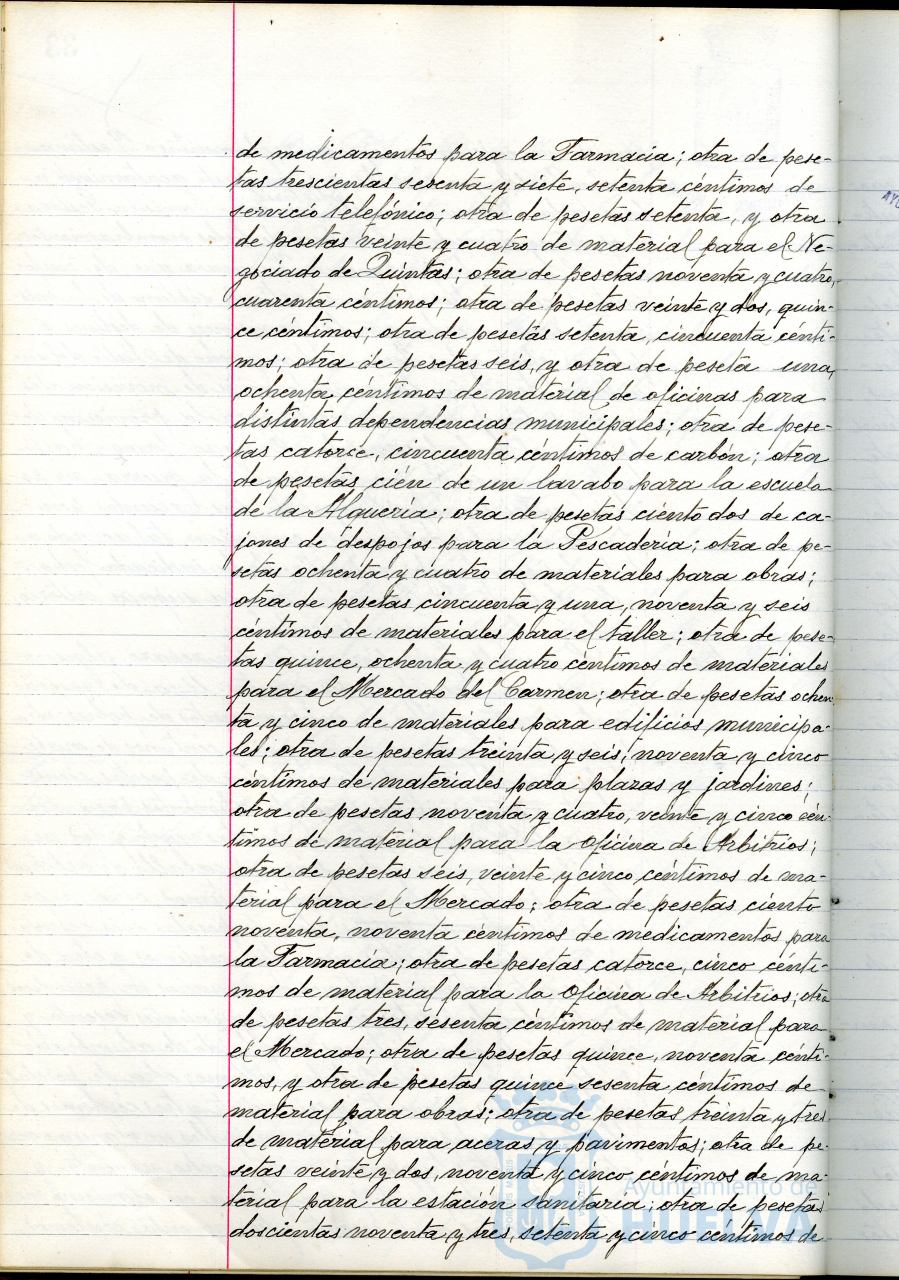 de medicamentos para la Farmacia; otra de pese-
tas trescientas sesenta y siete, setenta céntimos de
servicio telefónico; otra de pesetas setenta, y otra
de pesetas veinte y cuatro de material para el Ne-
gociado de Quintas; otra de pesetas noventa y cuatro,
cuarenta céntimos; otra de pesetas veinte y dos, quin-
ce céntimos; otra de pesetas setenta, cincuenta cénti-
mos; otra de pesetas seis, y otra de peseta una,
ochenta céntimos de material de oficinas para
distintas dependencias municipales; otra de pese-
tas catorce, cincuenta céntimos de carbón; otra
de pesetas cién de un lavabo para la escuela
de la Alquería; otra de pesetas ciento dos de ca-
jones de despojos para la Pescadería; otra de pe-
setas ochenta y cuatro de materiales para obras;
otra de pesetas cincuenta y una, noventa y seis
céntimos de materiales para el taller; otra de pese-
tas quince, ochenta y cuatro céntimos de materiales
para el Mercado del Carmen; otra de pesetas ochen-
ta y cinco de materiales para edificios municipa-
les; otra de pesetas treinta y seis, noventa y cinco
céntimos de materiales para plazas y jardines;
otra de pesetas noventa y cuatro, veinte y cinco cén-
timos de material para la oficina de Arbitrios;
otra de pesetas seis, veinte y cinco céntimos de ma-
terial para el Mercado; otra de pesetas ciento
noventa, noventa céntimos de medicamentos para
la Farmacia; otra de pesetas catorce, cinco cénti-
mos de material para la Oficina de Arbitrios; otra
de pesetas tres, sesenta céntimos de material para
el Mercado; otra de pesetas quince, noventa cénti-
mos, y otra de pesetas quince sesenta céntimos de
material para obras; otra de pesetas treinta y tres
de material para aceras y pavimentos; otra de pe-
setas veinte y dos, noventa y cinco céntimos de ma-
terial para la estación sanitaria; otra de pesetas
doscientas noventa y tres, setenta y cinco céntimos de
Ayuntamiento de
HUELVA